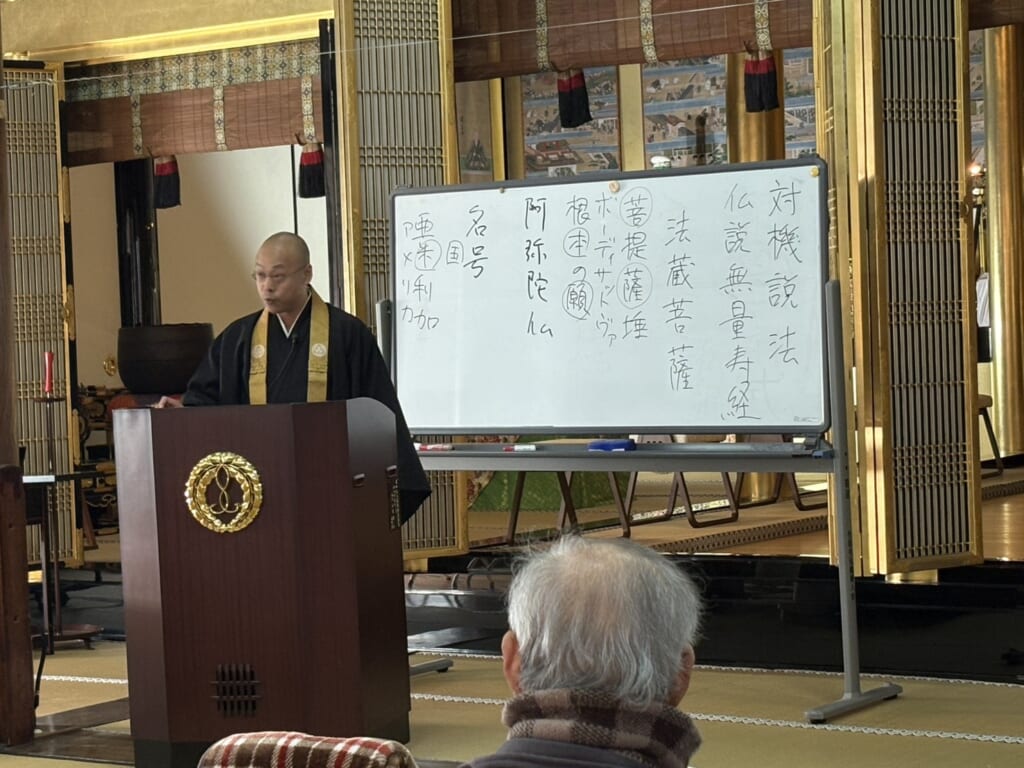 対機説法
仏説無量寿経
法蔵菩薩
菩提薩埵
ボーディサットヴァ
根本の願
阿弥陀仏
名号
国
唖米利加
アメリカ